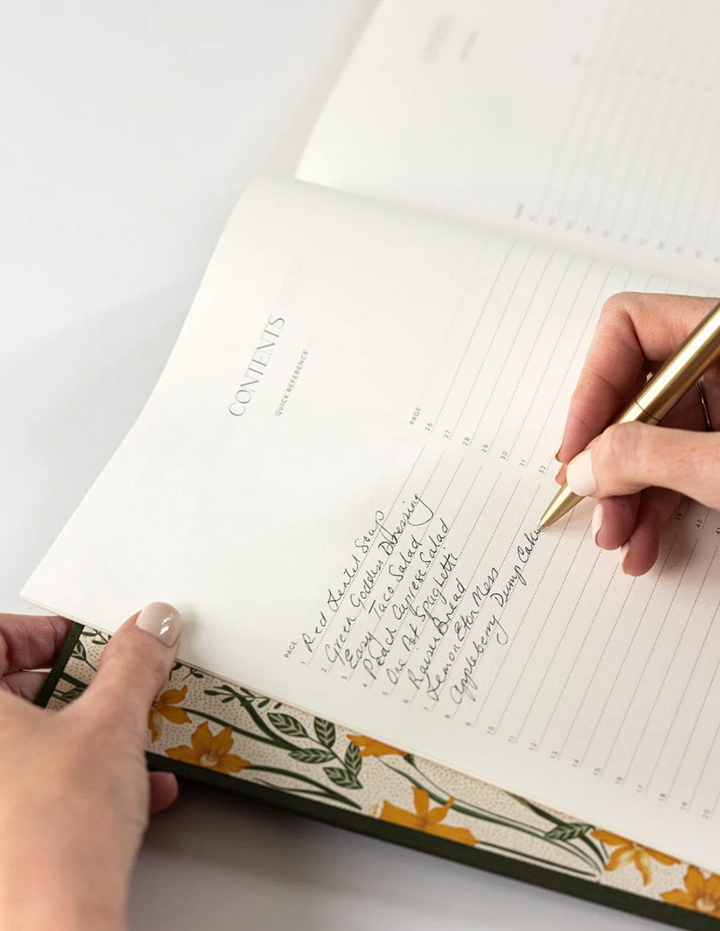 CONTENTS
QUICK REFERENCE
PAGE
1 Red Lentel Soup
2 Green Goddess Dressing
3 Easy Taco Salad
4 Peach Caprese Salad
5 One Pot Spaghetti
6 Raisin Bread
7 Lemon Eton Mess
8 Appleberry Dump Cake
9
10
11
12
13
14
15
16
17
18
19
20
PAGE
26
27
28
29
30
31
32
39
40
41